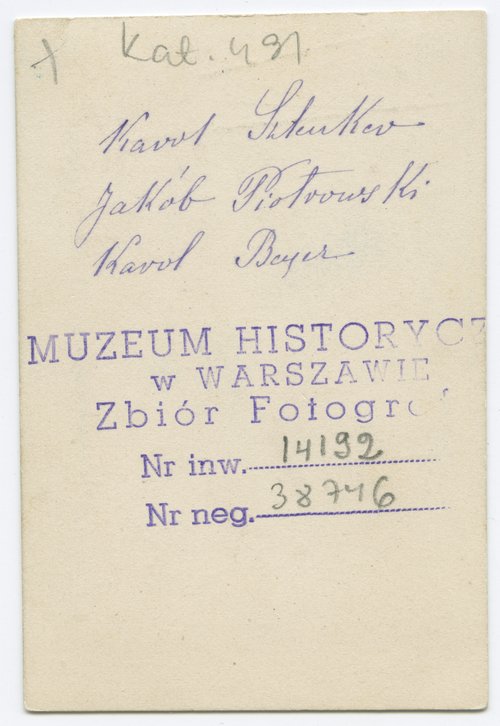 Kat. 491
Karol Sztuker
Jakób Piotrowski
Karol Beyer
MUZEUM HISTORYCZ
w WARSZAWIE
Zbiór Fotogra
Nr inw. 14192
Nr neg. 38746